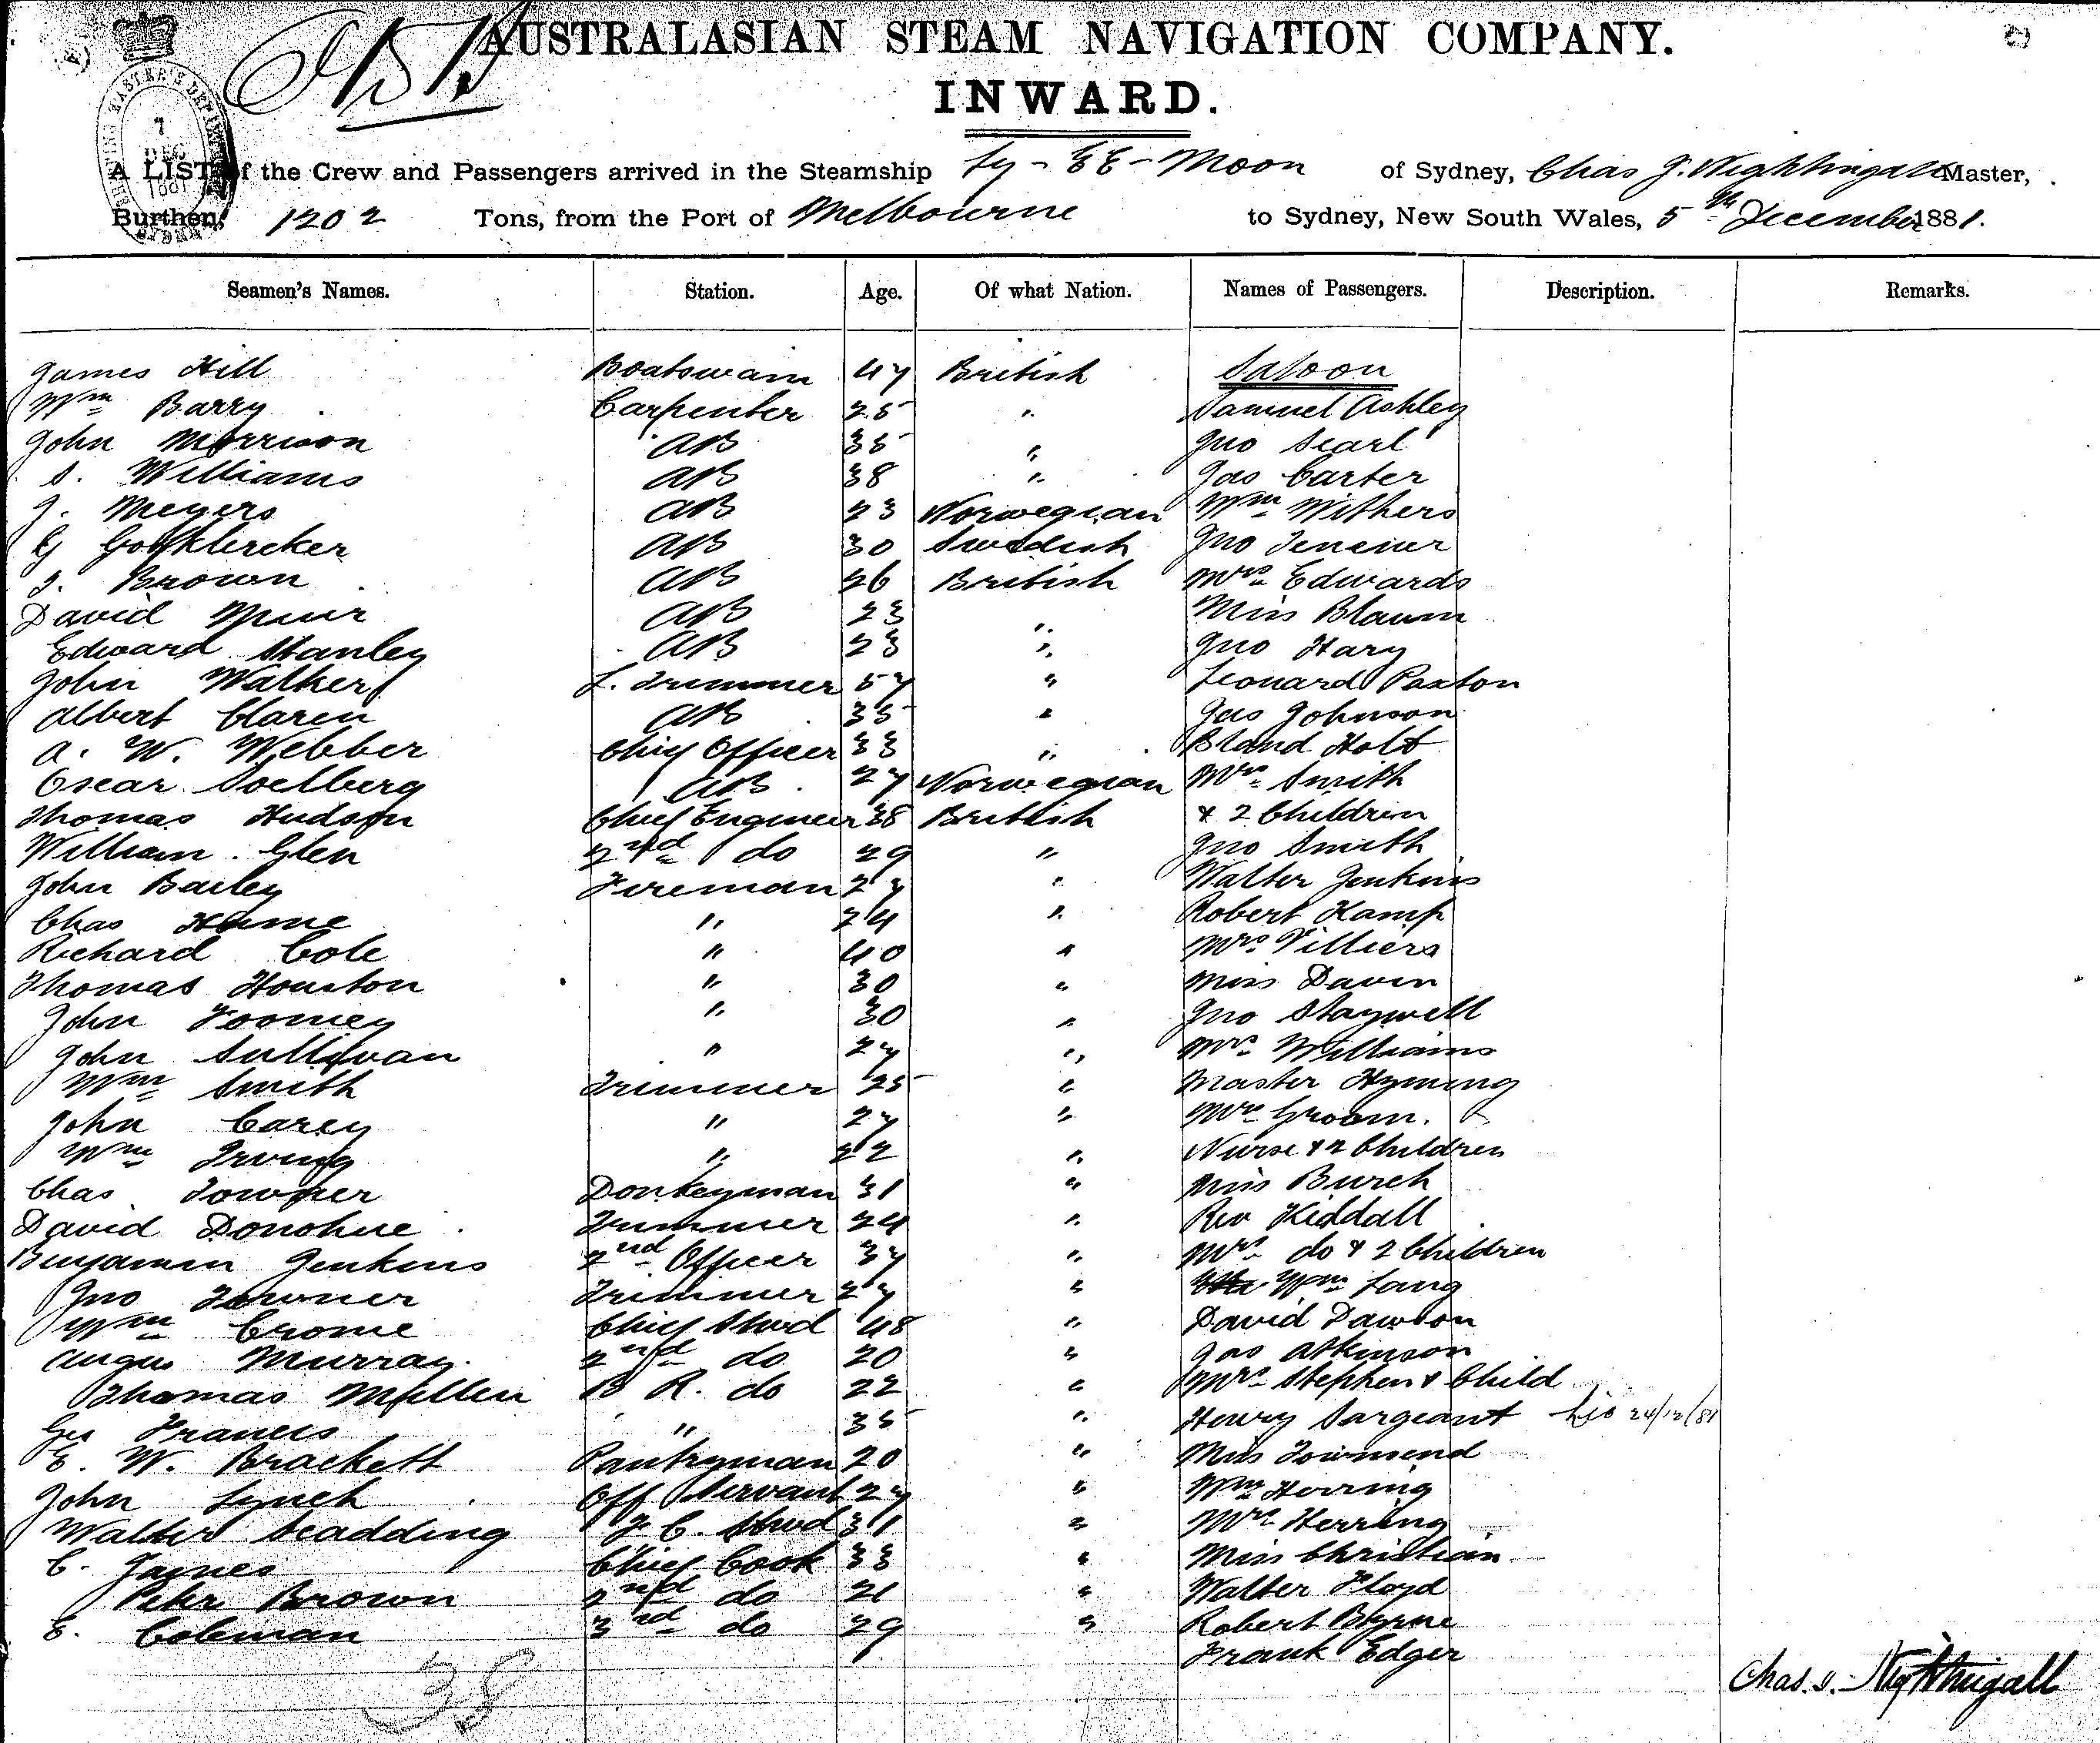 AUSTRALASIAN STEAM NAVIGATION COMPANY.
INWARD.
A LIST of the Crew and Passengers arrived in the Steamship Ly - EE - Moon of Sydney, Chas J. Nightingall Master,
Burthen, 1202 Tons, from the Port of Melbourne to Sydney, New South Wales, 5th December 1881.
Seamen's Names. Station. Age. Of what Nation. Names of Passengers. Description. Remarks.
James Hill Boatswain 47 British Saloon
Wm Barry Carpenter 25 " Samuel Ashley
John Morrison AB 35 " Jno Searl
S. Williams AB 38 " Jas Carter
J. Meyers AB 23 Norwegian Wm Withers
G AB 30 Swedish Jno
J. Brown AB 26 British Mrs Edwards
David Muir AB 23 " Miss
Edward Stanley AB 23 " Jno Hary
John Walker L. Trimmer 57 " Leonard Paxton
Albert Claren AB 35 " Jas Johnson
A. W. Webber Chief Officer 33 " Bland Holt
Oscar Soelberg AB 27 Norwegian Mrs Smith
Thomas Hudson Chief Engineer 38 British & 2 Children
William Glen 2nd do 29 " Jno Smith
John Bailey Fireman 27 " Walter Jenkins
Chas Hume " 24 " Robert Kamp
Richard Cole " 40 " Mrs Villiers
Thomas Houston " 30 " Miss Davin
John Toomey " 30 " Jno Staywell
John Sullivan " 27 " Mrs Williams
Wm Smith Trimmer 25 " Master Hyming
John Carey " 27 " Mrs Groom.
Wm Irving " 22 " Nurse & 2 Children
Chas Towner Donkeyman 31 " Miss Burch
David Donohue Trimmer 24 " Rev Kiddall
Benjamin Jenkins 2nd Officer 37 " Mrs do & 2 Children
Jno Towner Trimmer 27 " Wm Lang
Wm Crome Chief Stwd 48 " David Dawson
Angus Murray 2nd do 20 " Jas Atkinson
Thomas Mullen B R. do 22 " Mrs Stephen & Child
Geo Francis " 35 " Henry Sargeant 24/12/81
E. W. Brackett Pantryman 20 " Miss Townsend
John Lynch Off Servant 27 " Wm Herring
Walter Scadding F. C. Stwd 31 " Mrs Herring
C. Jaynes Chief Cook 33 " Miss Christian
Peter Brown 2nd do 21 " Walter Floyd
E. Coleman 3rd do 29 " Robert Byrne
Frank Edger
38
Chas. J. Nightingall